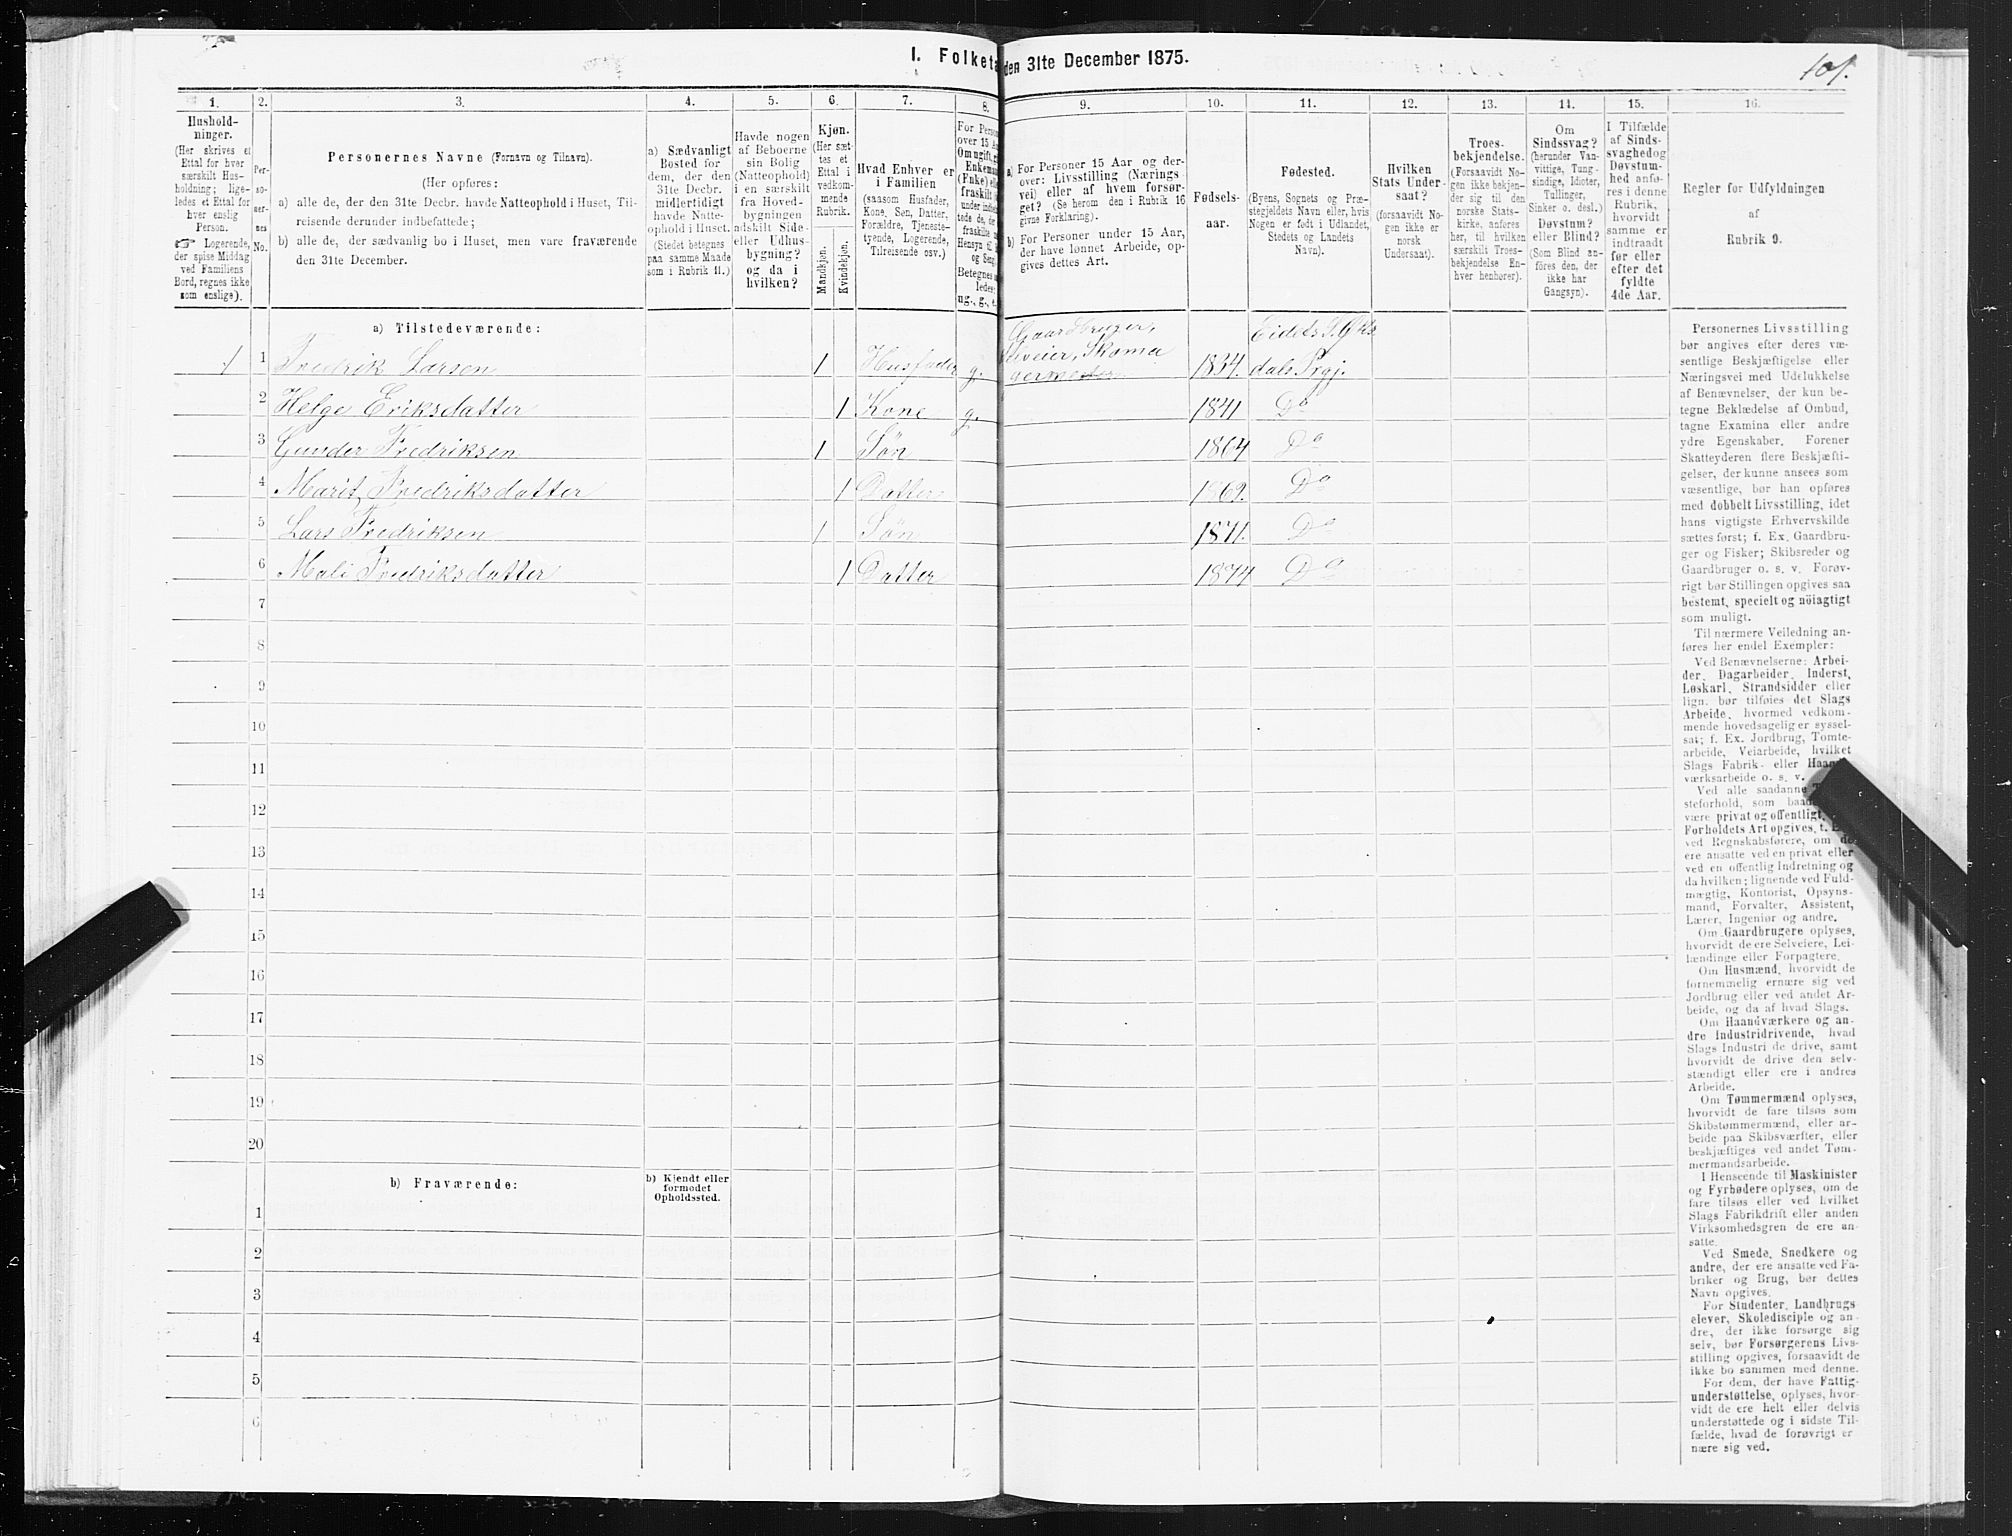 I. Folketa
den 31te December 1875.
101.
1.
2.
3.
4.
5.
6.
7.
8.
9.
10.
11.
12.
13.
14.
15.
16.
Hushold-
ninger.
(Her skrives et
Ettal for hver
særskilt Hus-
holdning; lige-
ledes et Ettal for
hver enslig
Person.
☞ Logerende,
der spise Middag
ved Familiens
Bord, regnes ikke
som enslige).
Per-
so-
ner-
nes
No.
Personernes Navne (Fornavn og Tilnavn).
(Her opføres:
a) alle de, der den 31te Decbr. havde Natteophold i Huset, Til-
reisende derunder indbefattede;
b) alle de, der sædvanlig bo i Huset, men vare fraværende
den 31te December.
a) Sædvanligt
Bosted for
dem, der den
31te Decbr.
midlertidigt
havde Natte-
ophold i Huset.
(Stedet betegnes
paa samme Maade
som i Rubrik 11.)
Havde nogen
af Beboerne
sin Bolig
(Natteophold)
i en særskilt
fra Hoved-
bygningen
adskilt Side-
eller Udhus-
bygning?
og da i
hvilken?
Kjøn.
(Her sæt-
tes et
Ettal i
vedkom-
mende
Rubrik.
Mandkjøn.
Kvindekjøn.
Hvad Enhver er
i Familien
(saasom Husfader,
Kone, Søn, Datter,
Forældre, Tjeneste-
tyende, Logerende,
Tilreisende osv.)
For Person
over 15 Aa
Om ugift, g
Enkeman
(Fnke) elle
fraskilt
under indbe
tede de, de
fraskilte
Hensyn til
og Seng
Betegnes
ledes:
ug., g., e.
a) For Personer 15 Aar og der-
over: Livsstilling (Nærings-
vei) eller af hvem forsør-
get? (Se herom den i Rubrik 16
givne Forklaring).
b) For Personer under 15 Aar,
der have lønnet Arbeide, op-
gives dettes Art.
Fødsels-
aar.
Fødested.
(Byens, Sognets og Præ-
stegjeldets Navn eller, hvis
Nogen er født i Udlandet,
Stedets og Landets
Navn).
Hvilken
Stats Under-
saat?
(forsaavidt No-
gen ikke er
norsk
Undersaat).
Troes-
bekjendelse.
(Forsaavidt No-
gen ikke bekjen-
der sig til den
norske Stats-
kirke, anføres
her, til hvilken
særskilt Troes-
bekjendelse En-
hver henhører).
Om
Sindssvag?
(herunder Van-
vittige, Tung-
sindige, Idioter,
Tullinger,
Sinker o. desl.)
Døvstum?
eller Blind?
(Som Blind an-
føres den, der
ikke har
Gangsyn).
I Tilfælde
af Sinds-
svaghed og
Døvstum-
hed anfø-
res i denne
Rubrik,
hvorvidt
samme er
indtraadt
før eller
efter det
fyldte
4de Aar.
Regler for Udfyldningen
af
Rubrik 9.
a) Tilstedeværende:
Gaardbruger,
Eidets S. Øks
1 1 Fredrik Larsen 1 Husfader g. Selveier, Skoma 1834. dals Prgj.
germester
2 Helge Eriksdatter 1 Kone g. 1841 Do
3 Gunder Fredriksen 1 Søn 1864 Do
4 Marit Fredriksdatter 1 Datter 1869. Do
5 Lars Fredriksen 1 Søn 1871. Do
6 Mali Fredriksdatter 1 Datter 1874 Do
7
8
9
10
11
12
13
14
15
16
17
18
19
20
b) Fraværende:
b) Kjendt eller
formodet
Opholdssted.
1
2
3
4
5
6
Personernes Livsstilling
bør angives efter deres væ-
sentlige Beskjæftigelse eller
Næringsvei med Udelukkelse
af Benævnelser, der kun be-
tegne Beklædelse af Ombud,
tagne Examina eller andre
ydre Egenskaber. Forener
Skatteyderen flere Beskjæfti-
gelser, der kunne ansees som
væsentlige, bør han opføres
med dobbelt Livsstilling, idet
hans vigtigste Erhvervskilde
sættes først; f. Ex. Gaardbru-
ger og Fisker; Skibsreder og
Gaardbruger o. s. v. Forøv-
rigt bør Stillingen opgives saa
bestemt, specielt og nöiagtigt
som muligt.
Til nærmere Veiledning an-
føres her endel Exempler:
Ved Benævnelserne: Arbei-
der, Dagarbeider, Inderst,
Løskarl, Strandsidder eller
lign. bør tilføies det Slags
Arbeide, hvormed vedkom-
mende hovedsagelig er syssel-
sat; f. Ex. Jordbrug, Tomte-
arbeide, Veiarbeide, hvilket
Slags Fabrik- eller Haand-
værksarbeide o. s. v.
Ved alle saadanne
steforhold, som baade
være privat og offentligt,
Forholdets Art opgives, t.
ved Regnskabsførere, om de
ere ansatte ved en privat eller
ved en offentlig Indretning og
da hvilken; lignende ved Fuld-
mægtig, Kontorist, Opsyns-
mand, Forvalter, Assistent,
Lærer, Ingeniør og andre.
Om Gaardbrugere oplyses,
hvorvidt de ere Selveiere, Lei-
lændinge eller Forpagtere.
Om Husmænd, hvorvidt de
fornemmelig ernære sig ved
Jordbrug eller ved andet Ar-
beide, og da af hvad Slags.
Om Haandværkere og an-
dre Industridrivende, hvad
Slags Industri de drive, samt
hvorvidt de drive den selv-
stændigt eller ere i andres
Arbeide.
Om Tømmermænd oplyses,
hvorvidt de fare tilsøs som
Skibstømmermænd, eller ar-
beide paa Skibsværfter, eller
beskjæftiges ved andet Tøm-
mermandsarbeide.
I Henseende til Maskinister
og Fyrbødere oplyses, om de
fare tilsøs eller ved hvilket
Slags Fabrikdrift eller anden
Virksomhedsgren de ere an-
satte.
Ved Smede, Snedkere og
andre, der ere ansatte ved Fa-
briker og Brug, bør dettes
Navn opgives.
For Studenter, Landbrugs
elever, Skoledisciple og an-
dre, der ikke forsørge sig
selv, bør Forsørgerens Livs-
stilling opgives, forsaavidt de
ikke bo sammen med denne.
For dem, der have Fattig-
understøttelse, oplyses, hvor-
vidt de ere helt eller delvis
understøttede og i sidste Til-
fælde, hvad de forøvrigt er
nære sig ved.